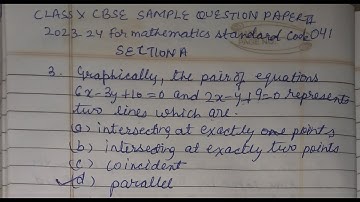 CLASS X CBSE SAMPLE QUESTION PAPER II
2023-24 for mathematics standard Code 041
SECTION A
3. Graphically, the pair of equations
6x-3y+10=0 and 2x-y+9=0 represents
two lines which are.
(a) intersecting at exactly one points
(b) intersecting at exactly two points
(c) coincident
(d) parallel